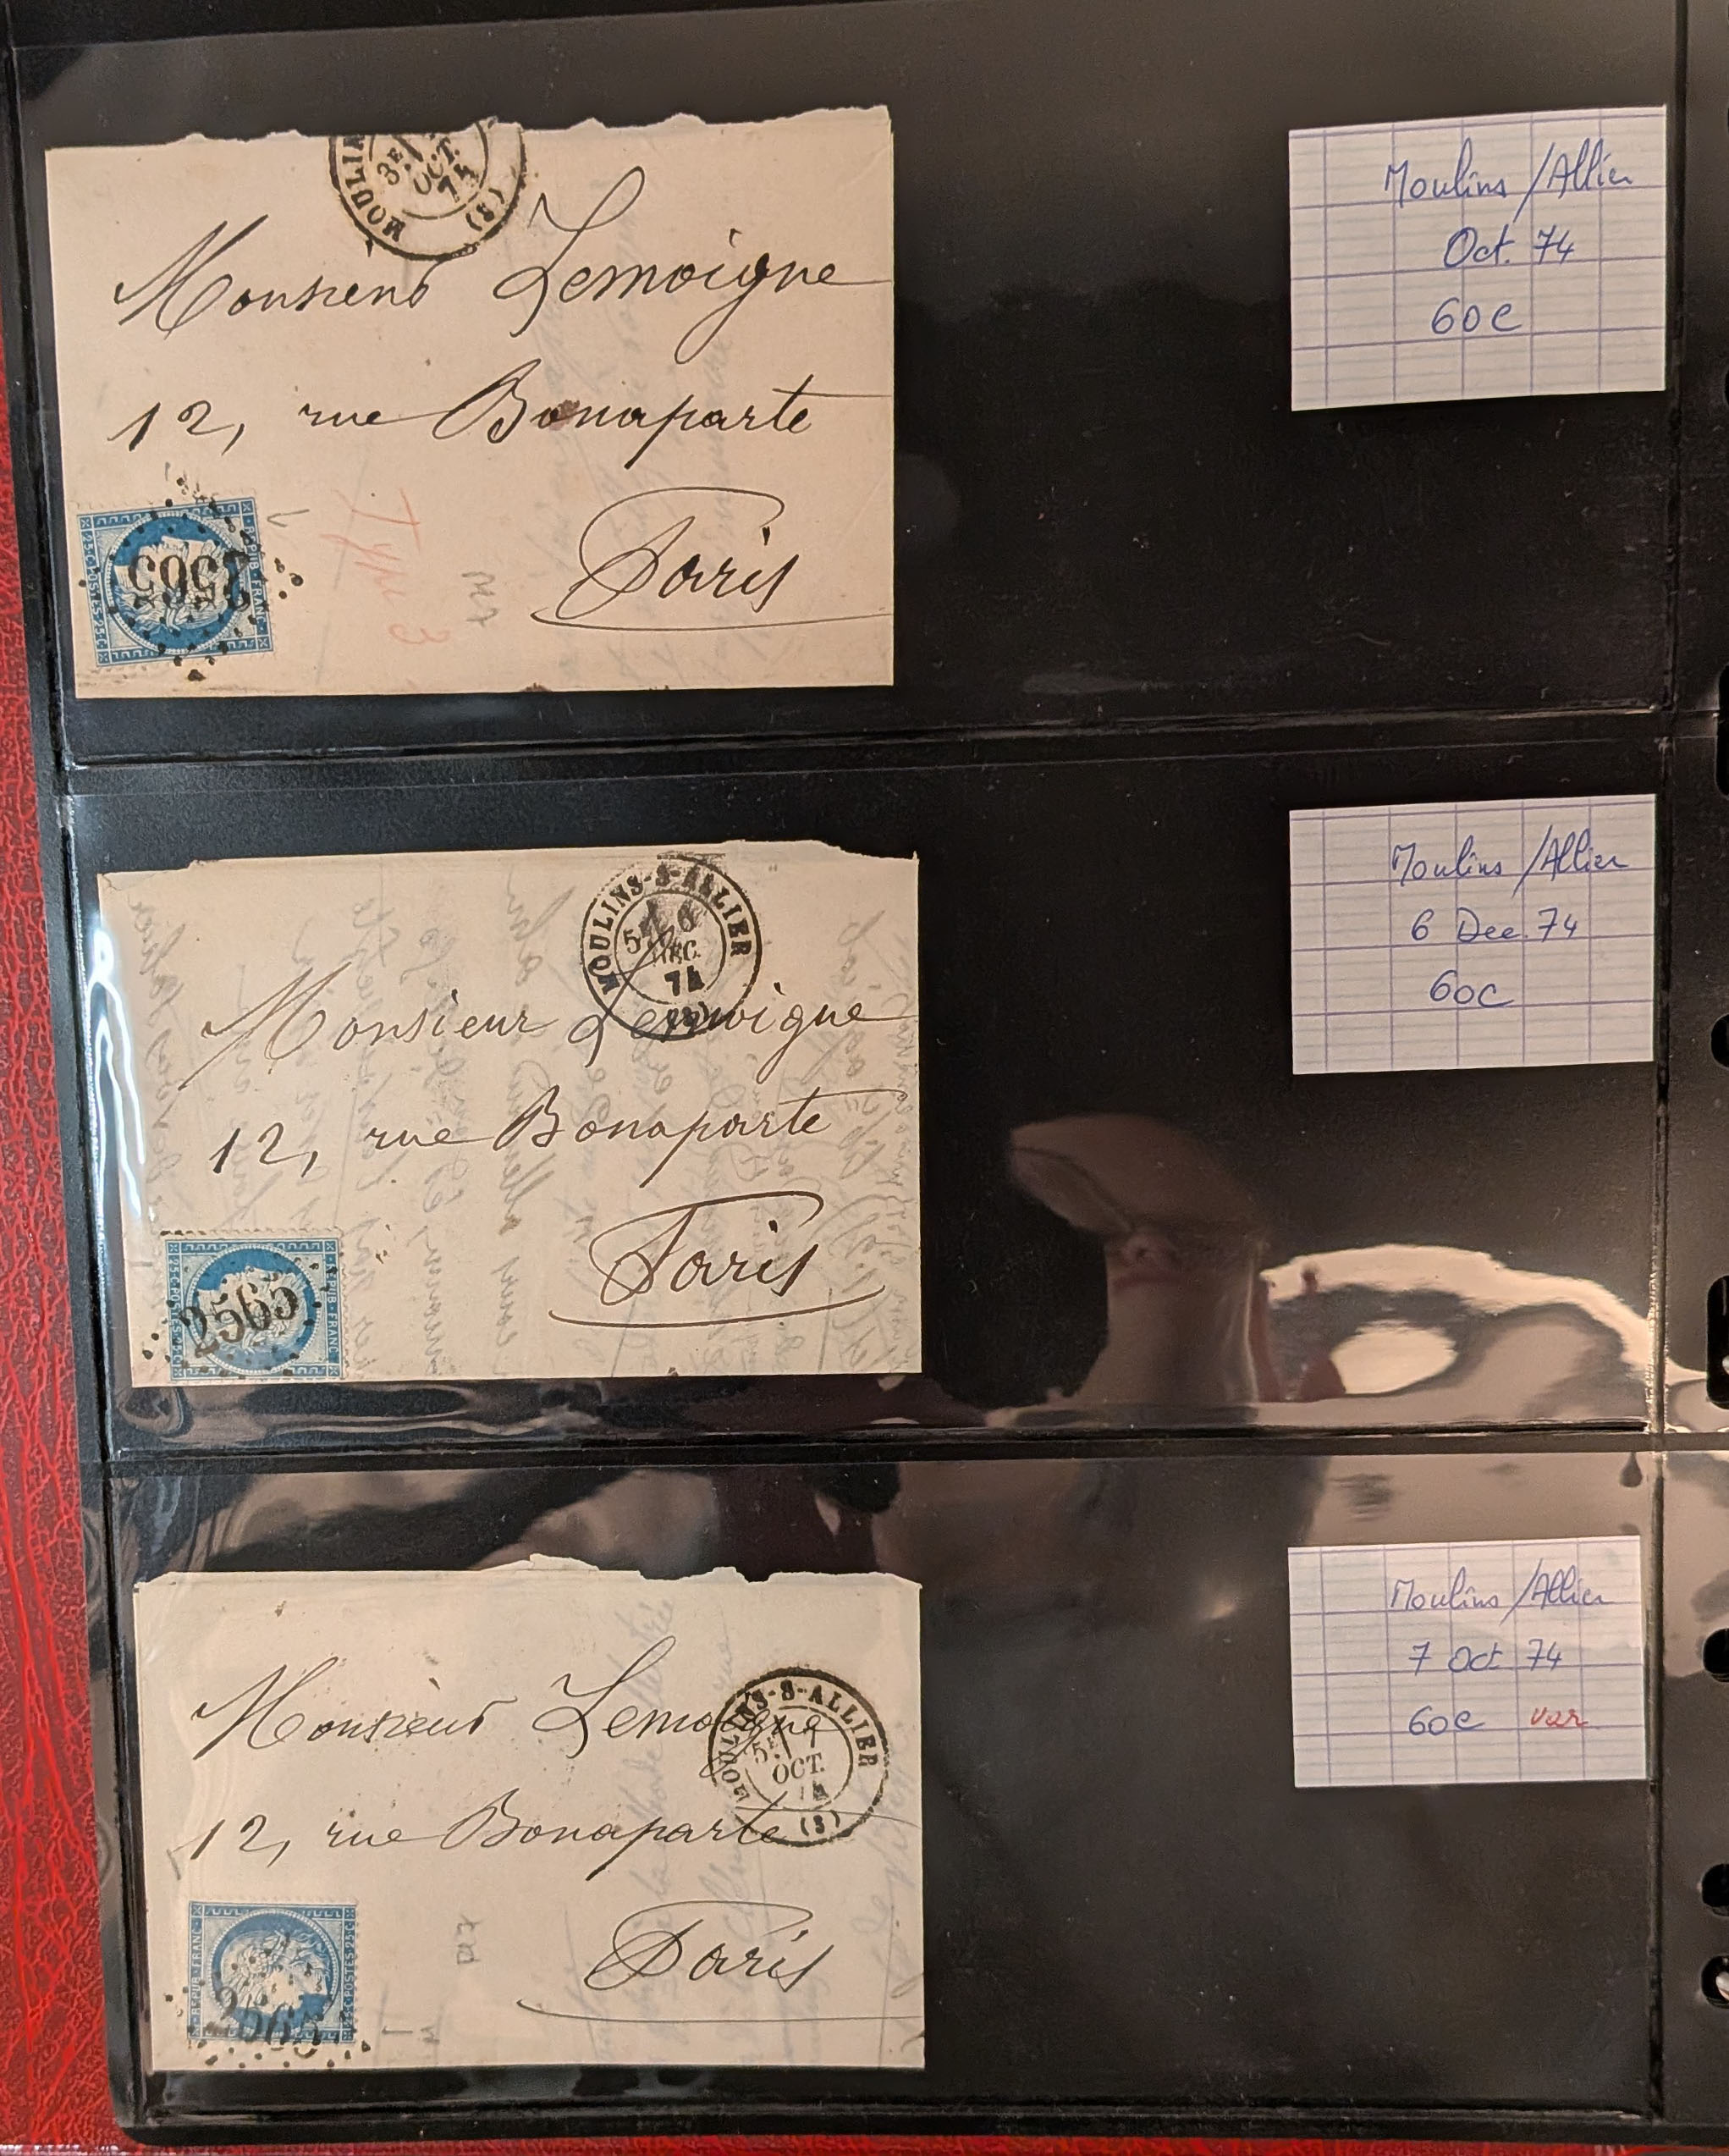 MOULIN
3E
OCT.
74
(3)
Monsieur Lemoigne
12, rue Bonaparte
Paris
Type 3
REPUB·FRANC·
25·C·POSTES·25·C
2565
Moulins /Allier
Oct. 74
60C
MOULINS-S-ALLIER
5E 6
DEC.
74
(3)
Monsieur Lemoigne
12, rue Bonaparte
Paris
REPUB·FRANC·
25·C·POSTES·25·C
2565
Moulins /Allier
6 Dec. 74
60C
MOULINS-S-ALLIER
5E 7
OCT.
74
(3)
Monsieur Lemoigne
12, rue Bonaparte
Paris
REPUB·FRANC·
25·C·POSTES·25·C
2565
Moulins /Allier
7 Oct 74
60C var